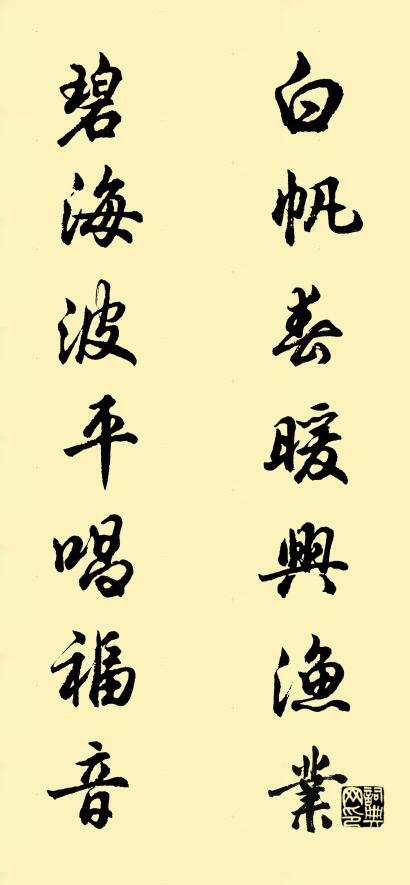 白帆春暖興漁業
碧海波平唱福音
詞典網印